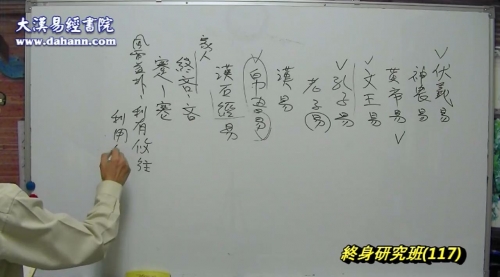 大漢易經書院
www.dahann.com
伏羲易
神農易
黃帝易
文王易
孔子易
老子易
漢易
帛書易
漢石經易
家人
終吝-吝
蹇-蹇
風雷益卦
利有攸往
利用
終身研究班(117)